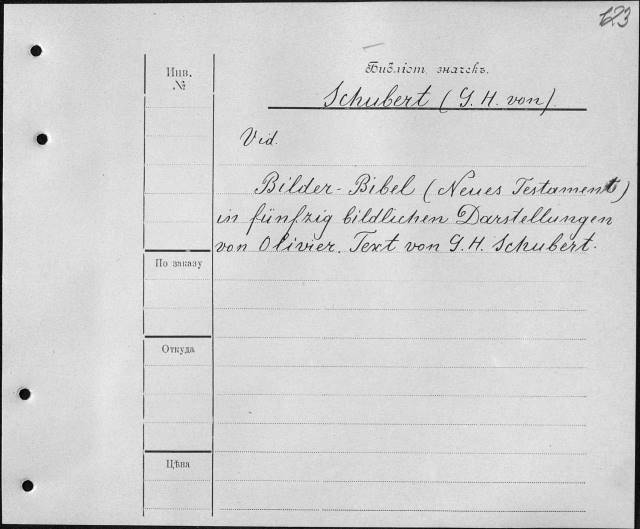 623
Инв.
№
Библіот. значекъ.
Schubert (G. H. von).
Vid.
Bilder-Bibel (Neues Testament)
in fünfzig bildlichen Darstellungen
von Olivier. Text von G. H. Schubert.
По заказу
Откуда
Цѣна